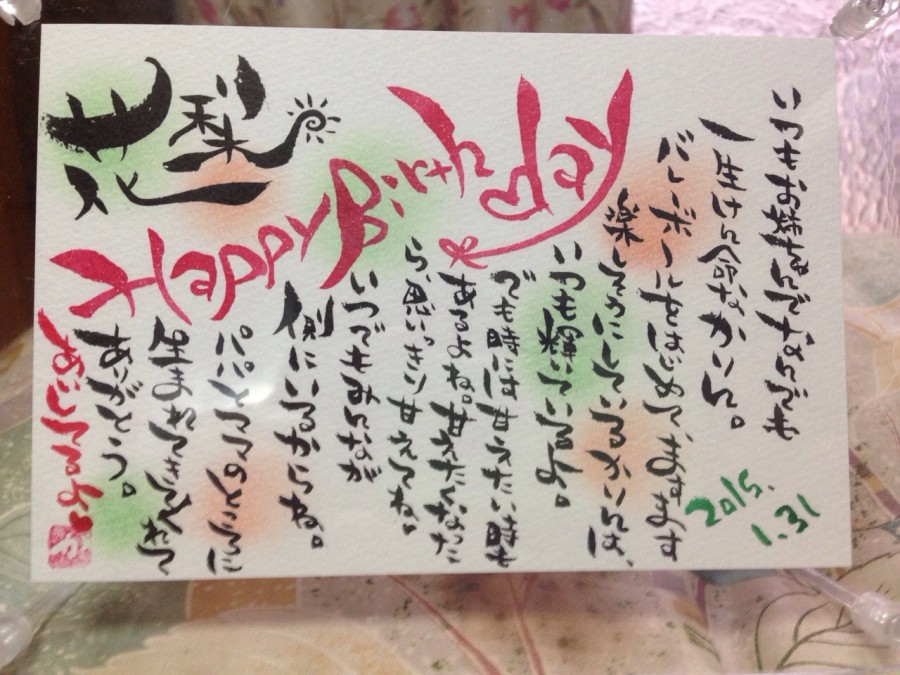 花梨
Happy Birth
Day
いつもお姉さんでなんでも
一生けん命なかりん。
バレーボールをはじめて、ますます
楽しそうにしているかりんは、
いつも輝いているよ。
でも時には甘えたい時も
あるよね。甘えたくなった
ら、思いっきり甘えてね。
いつでもみんなが
側にいるからね。
パパとママのところに
生まれてきてくれて
ありがとう。
あいしてるよ
2015.
1.31